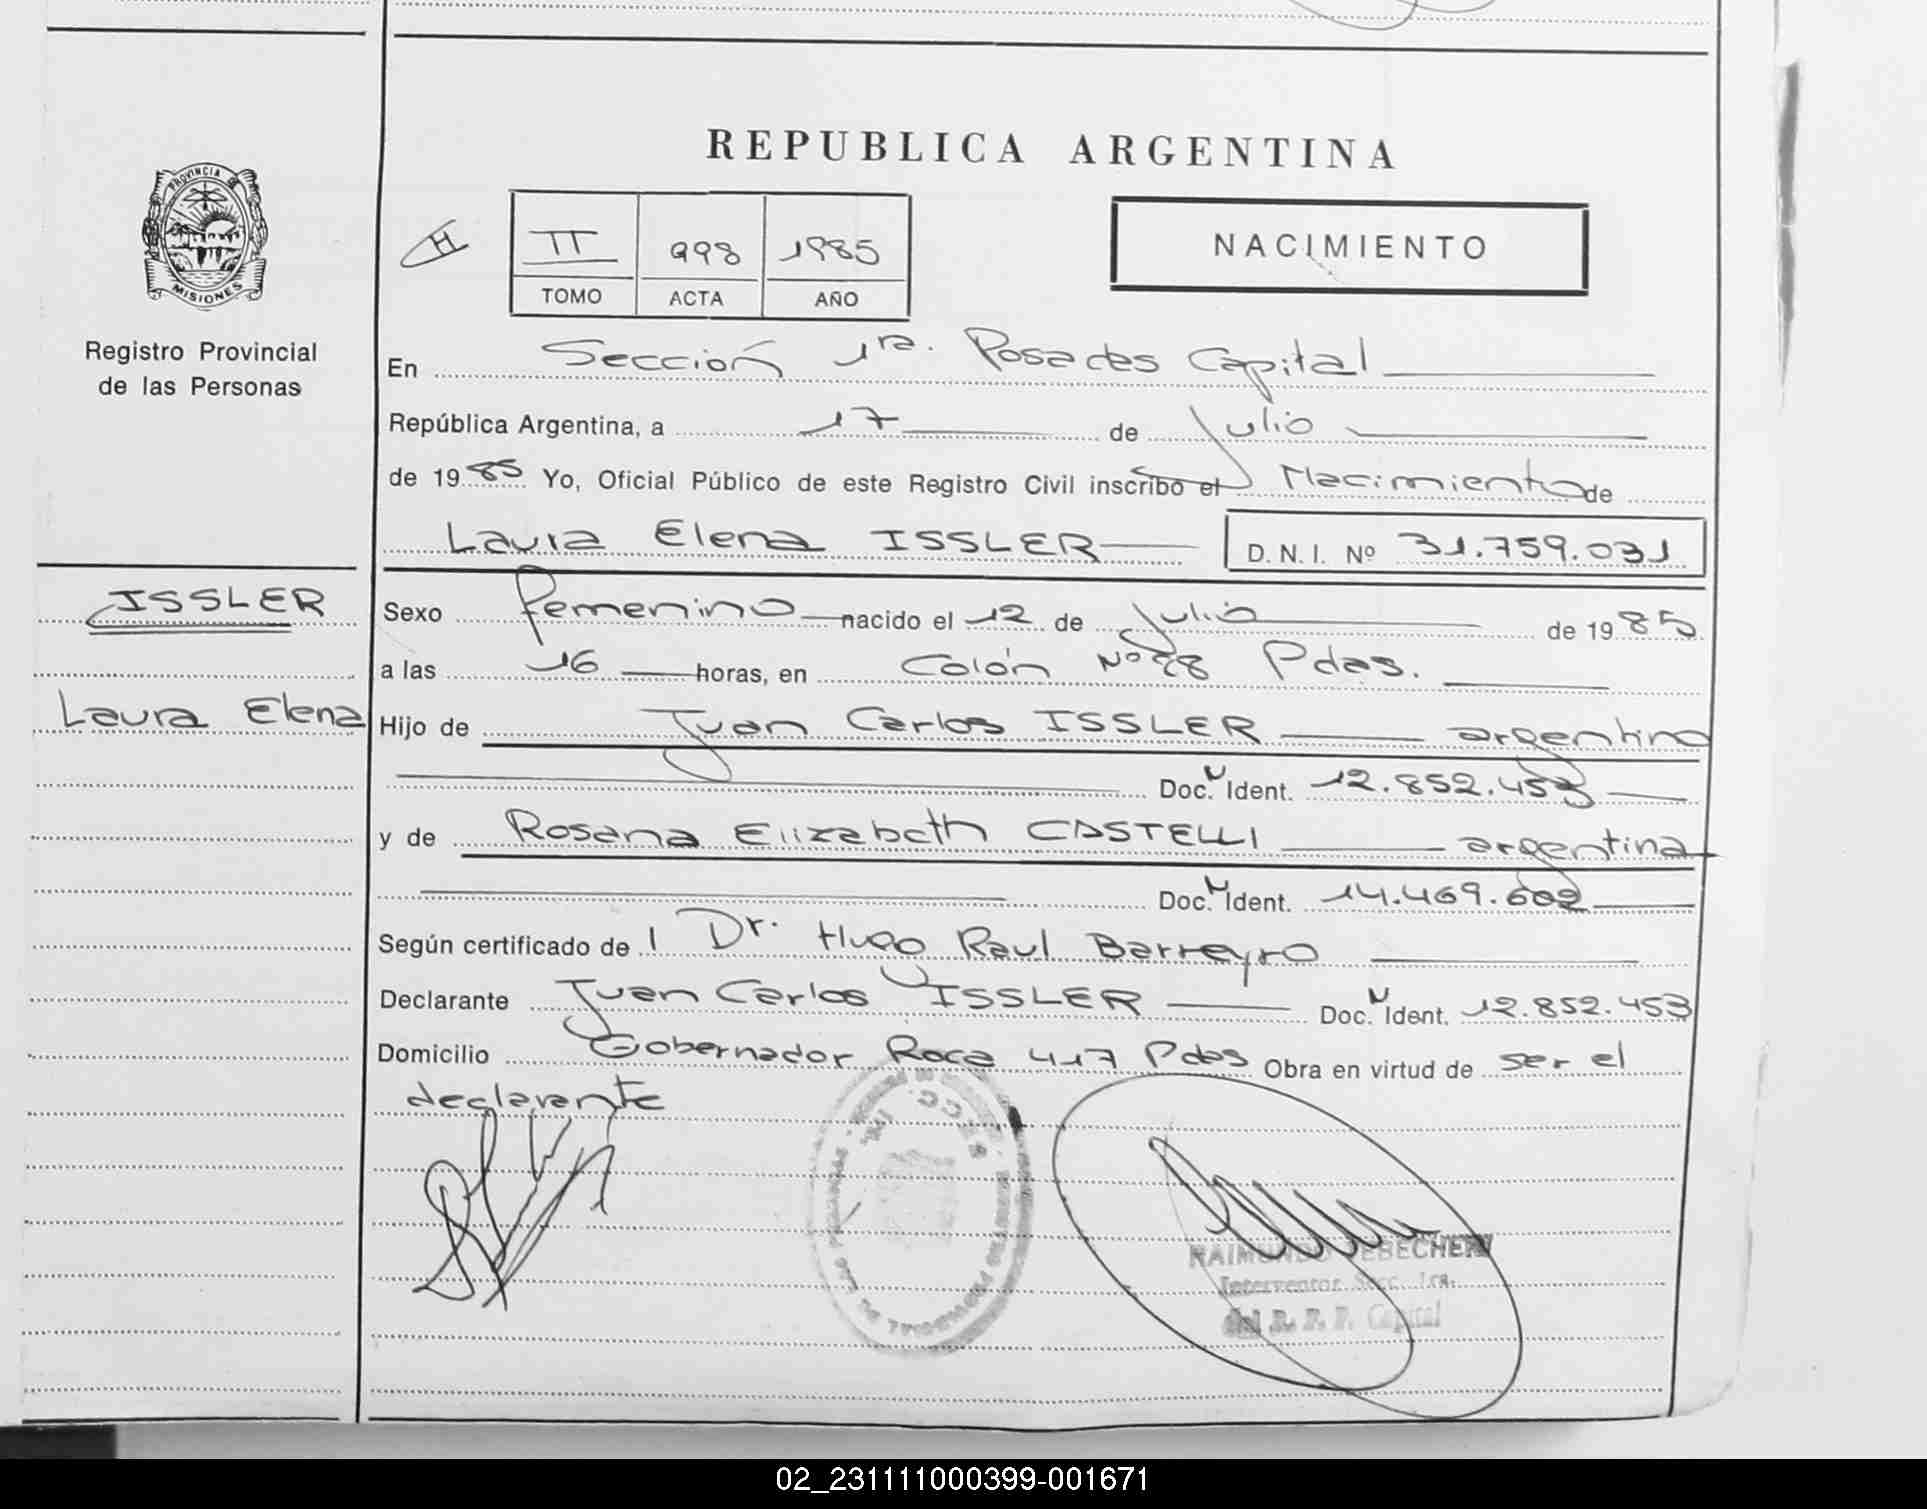 REPUBLICA ARGENTINA
PROVINCIA DE
MISIONES
Registro Provincial
de las Personas
H
II 998 1985
TOMO ACTA AÑO
NACIMIENTO
En Sección 1ra. Posadas Capital
República Argentina, a 17 de Julio
de 1985 Yo, Oficial Público de este Registro Civil inscribo el Nacimiento de
Laura Elena ISSLER D. N. I. Nº 31.759.031
ISSLER
Laura Elena
Sexo femenino nacido el 12 de julio de 1985
a las 16 horas, en Colón Nº 28 Pdas.
Hijo de Juan Carlos ISSLER argentino
Doc. N Ident. 12.852.453
y de Rosana Elizabeth CASTELLI argentina
Doc. N Ident. 14.469.602
Según certificado de l Dr. Hugo Raul Barreyro
Declarante Juan Carlos ISSLER Doc. N Ident. 12.852.453
Domicilio Gobernador Roca 417 Pdas Obra en virtud de ser el
declarante
SECC. 1ra.
RAIMUNDO
Interventor Secc. 1ra.
del R. P. P. Capital
02_231111000399-001671